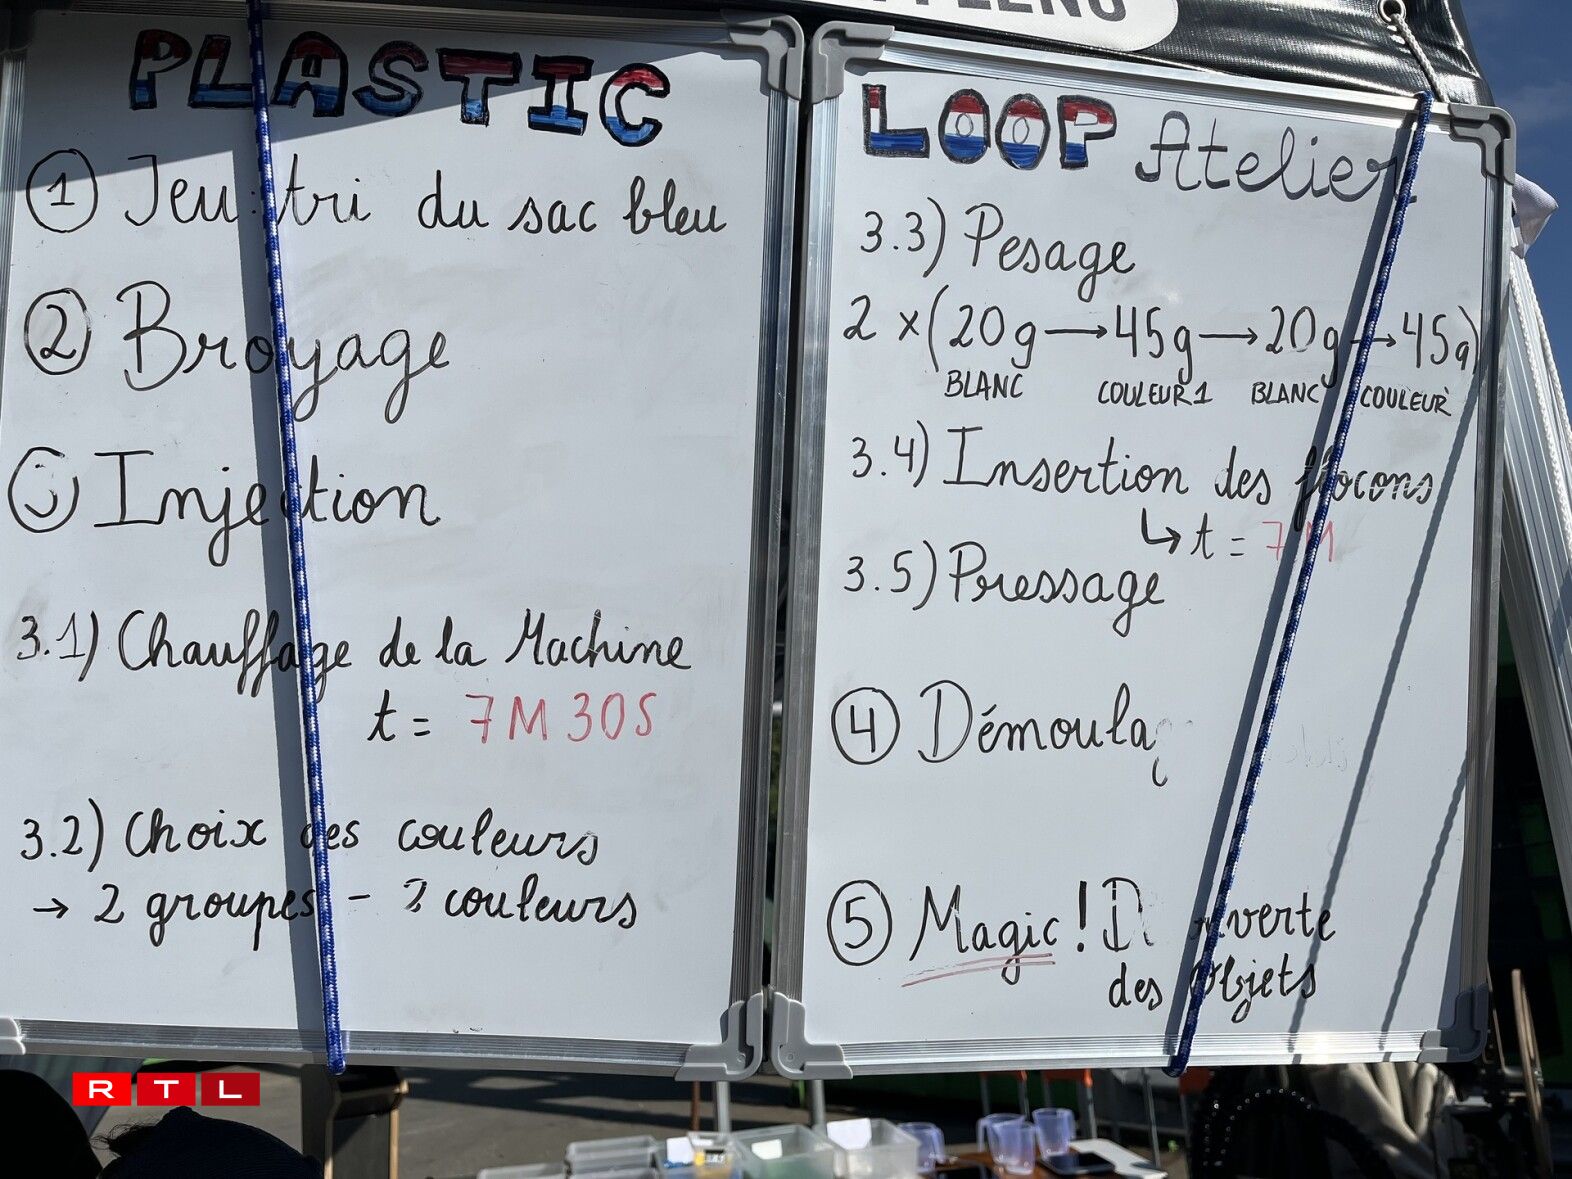 PLASTIC
1 Jeu: tri du sac bleu
2 Broyage
Injection
3.1) Chauffage de la Machine
t = 7M 30S
3.2) Choix des couleurs
→ 2 groupes - 2 couleurs
LOOP Atelier
3.3) Pesage
2 x (20g → 45g → 20g → 45g)
BLANC COULEUR 1 BLANC COULEUR
3.4) Insertion des flocons
↳ t = 7M
3.5) Pressage
4 Démoulag
5 Magic! D verte
des Objets
RTL